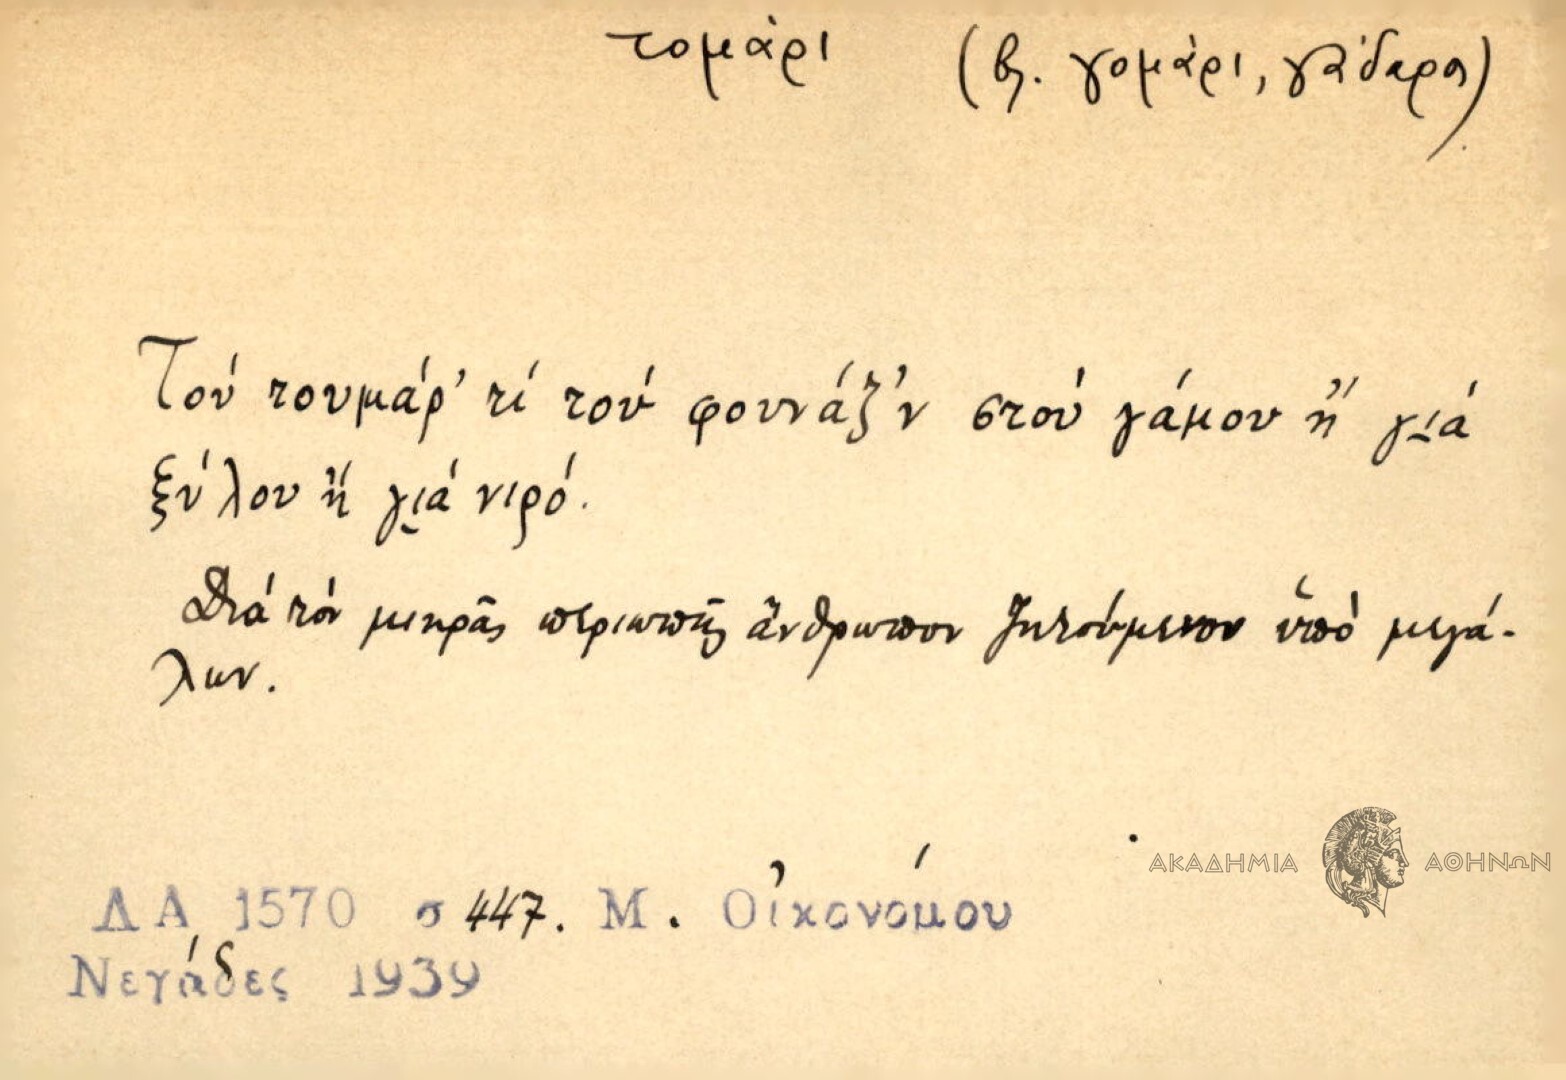 τομάρι (βλ. γομάρι, γάδαρος)
Τού τουμάρ' τί τού φουνάζ'ν στού γάμου ἤ γιά
ξύλου ἤ γιά νιρό.
Διά τόν μικρᾶς περιωπῆς ἄνθρωπον ζητούμενον ὑπό μεγά-
λων.
ΑΚΑΔΗΜΙΑ ΑΘΗΝΩΝ
ΛΑ 1570 σ 447. Μ. Οἰκονόμου
Νεγάδες 1939